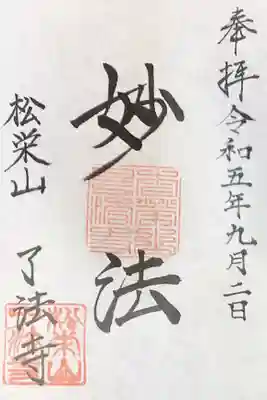 奉拝令和五年九月二日
妙法
松栄山
了法寺